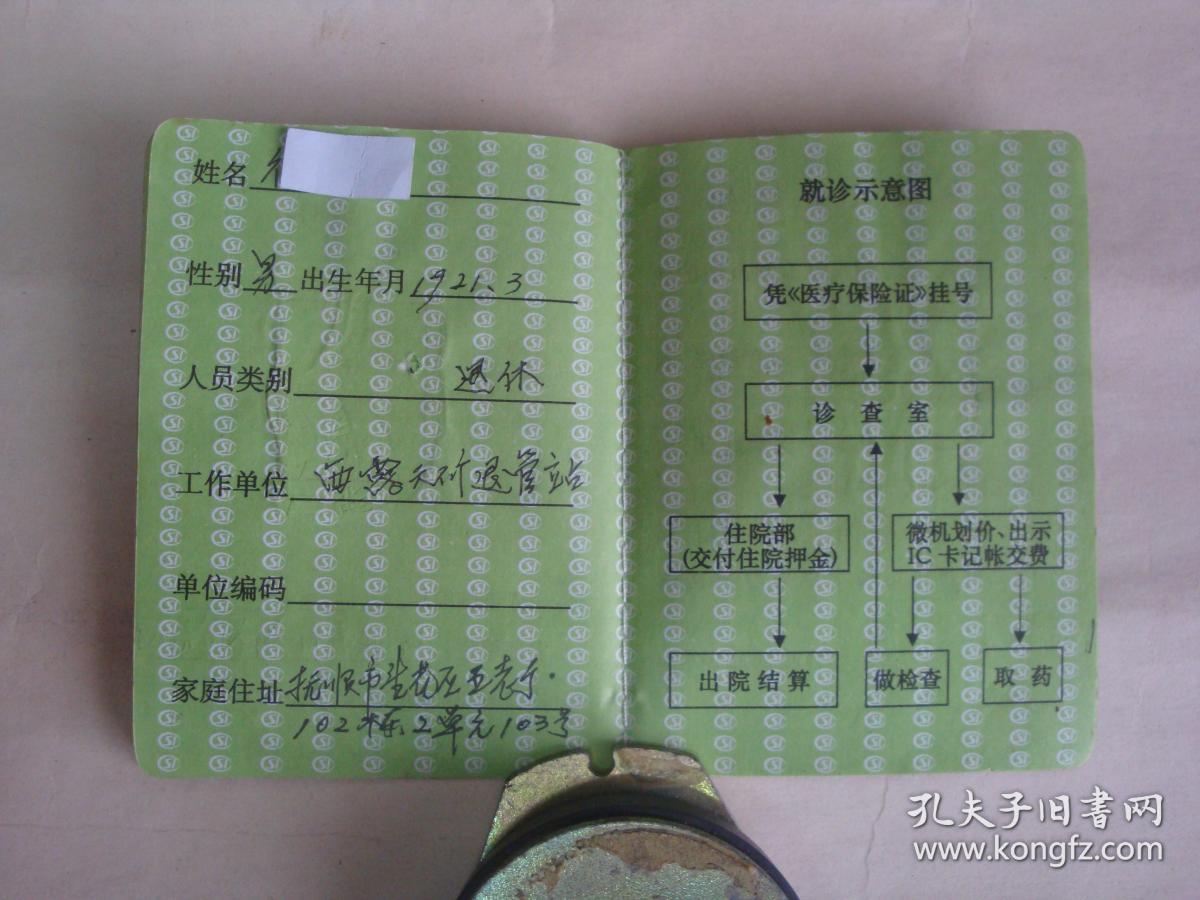 姓名
性别 男 出生年月 1921.3
人员类别 退休
工作单位 西露天矿退管站
单位编码
家庭住址 抚顺市
102栋2单元103号
就诊示意图
凭《医疗保险证》挂号
诊查室
住院部
(交付住院押金)
微机划价、出示
IC卡记帐交费
出院结算
做检查
取药
孔夫子旧书网
www.kongfz.com